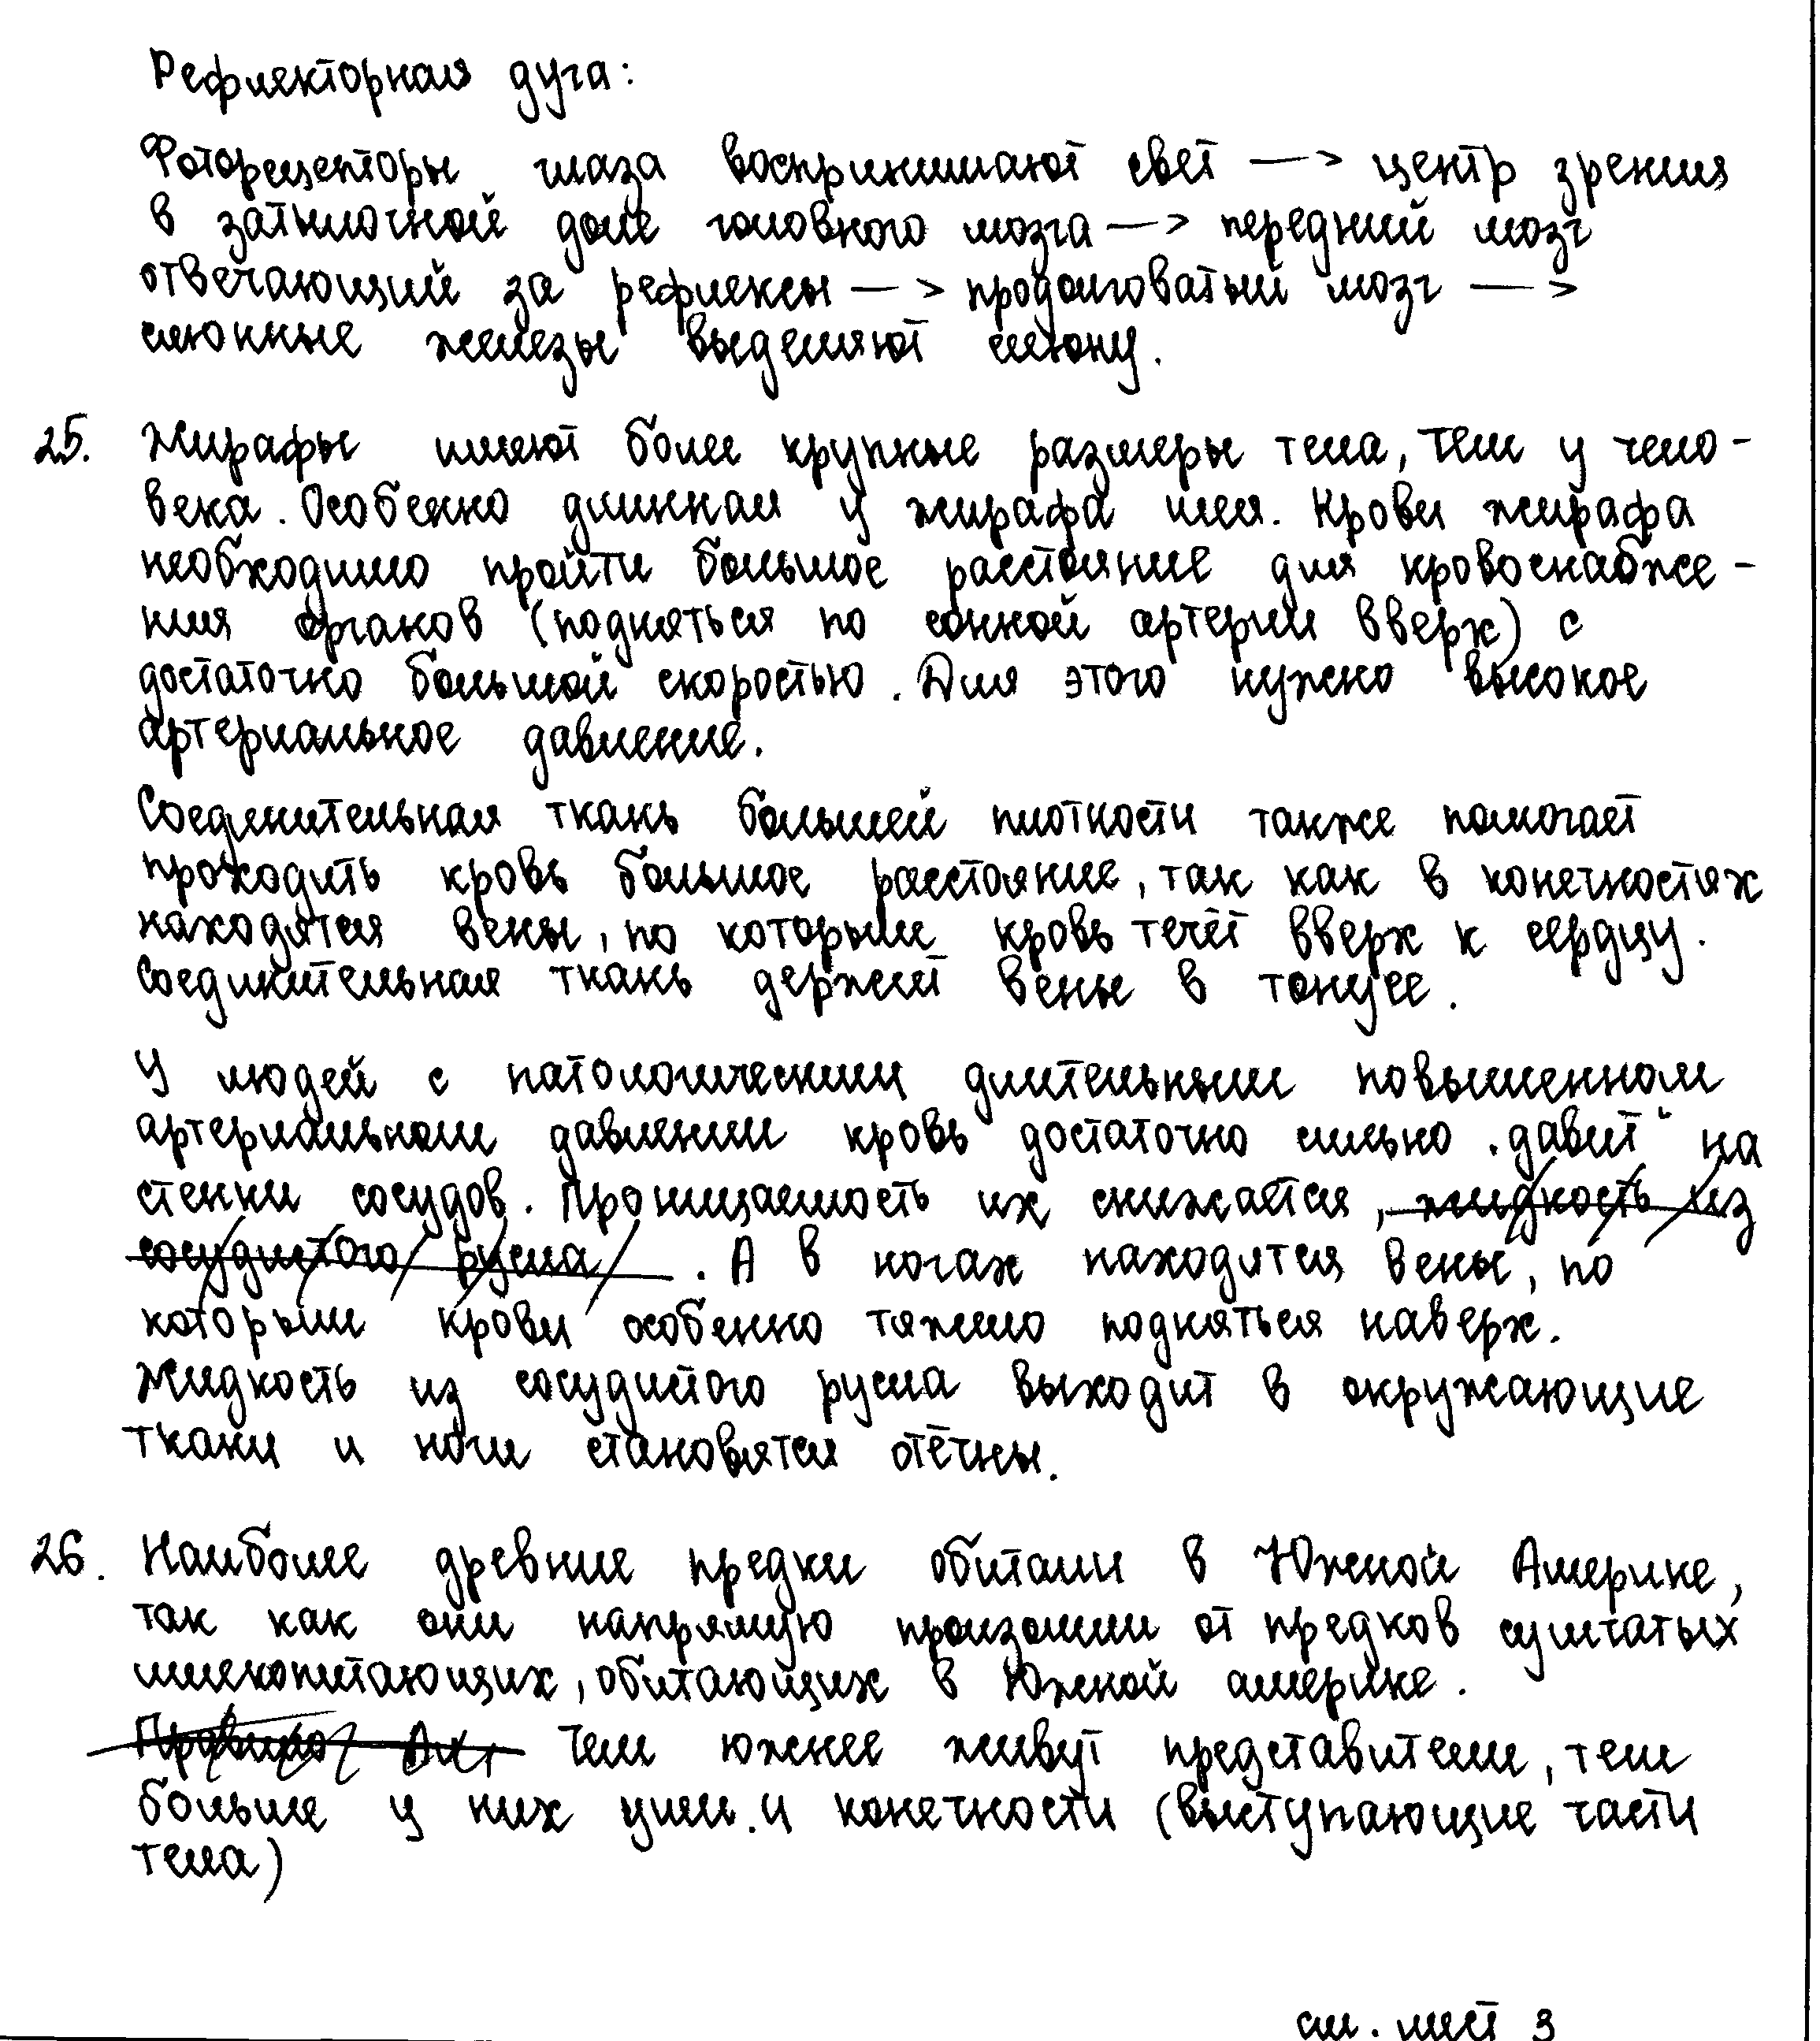 Рефлекторная дуга:
Фоторецепторы глаза воспринимают свет —> центр зрения
в затылочной доле головного мозга —> передний мозг
отвечающий за рефлексы —> продолговатый мозг —>
слюнные железы выделяют слюну.
25. Жирафы имеют более крупные размеры тела, чем у чело-
века. Особенно длинная у жирафа шея. Крови жирафа
необходимо пройти большое расстояние для кровоснабже-
ния органов (подняться по сонной артерии вверх) с
достаточно большой скоростью. Для этого нужно высокое
артериальное давление.
Соединительная ткань большей плотности также помогает
проходить кровь большое расстояние, так как в конечностях
находятся вены, по которым кровь течёт вверх к сердцу.
Соединительная ткань держит вены в тонусе.
У людей с патологическим длительным повышенном
артериальном давлении кровь достаточно сильно давит на
стенки сосудов. Проницаемость их снижается, жидкость из
сосудистого русла. А в ногах находятся вены, по
которым крови особенно тяжело подняться наверх.
Жидкость из сосудистого русла выходит в окружающие
ткани и ноги становятся отёчны.
26. Наиболее древние предки обитали в Южной Америке,
так как они напрямую произошли от предков сумчатых
млекопитающих, обитающих в Южной америке.
Правило Ал, Чем южнее живут представители, тем
больше у них уши и конечности (выступающие части
тела)
см. лист 3